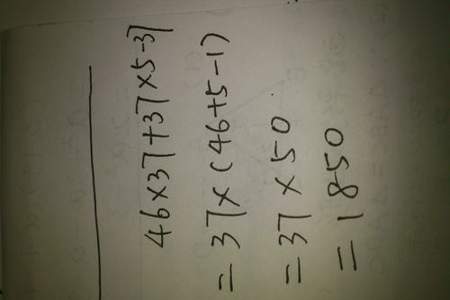 46×37+37×5-37
=37×(46+5-1)
=37×50
=1850